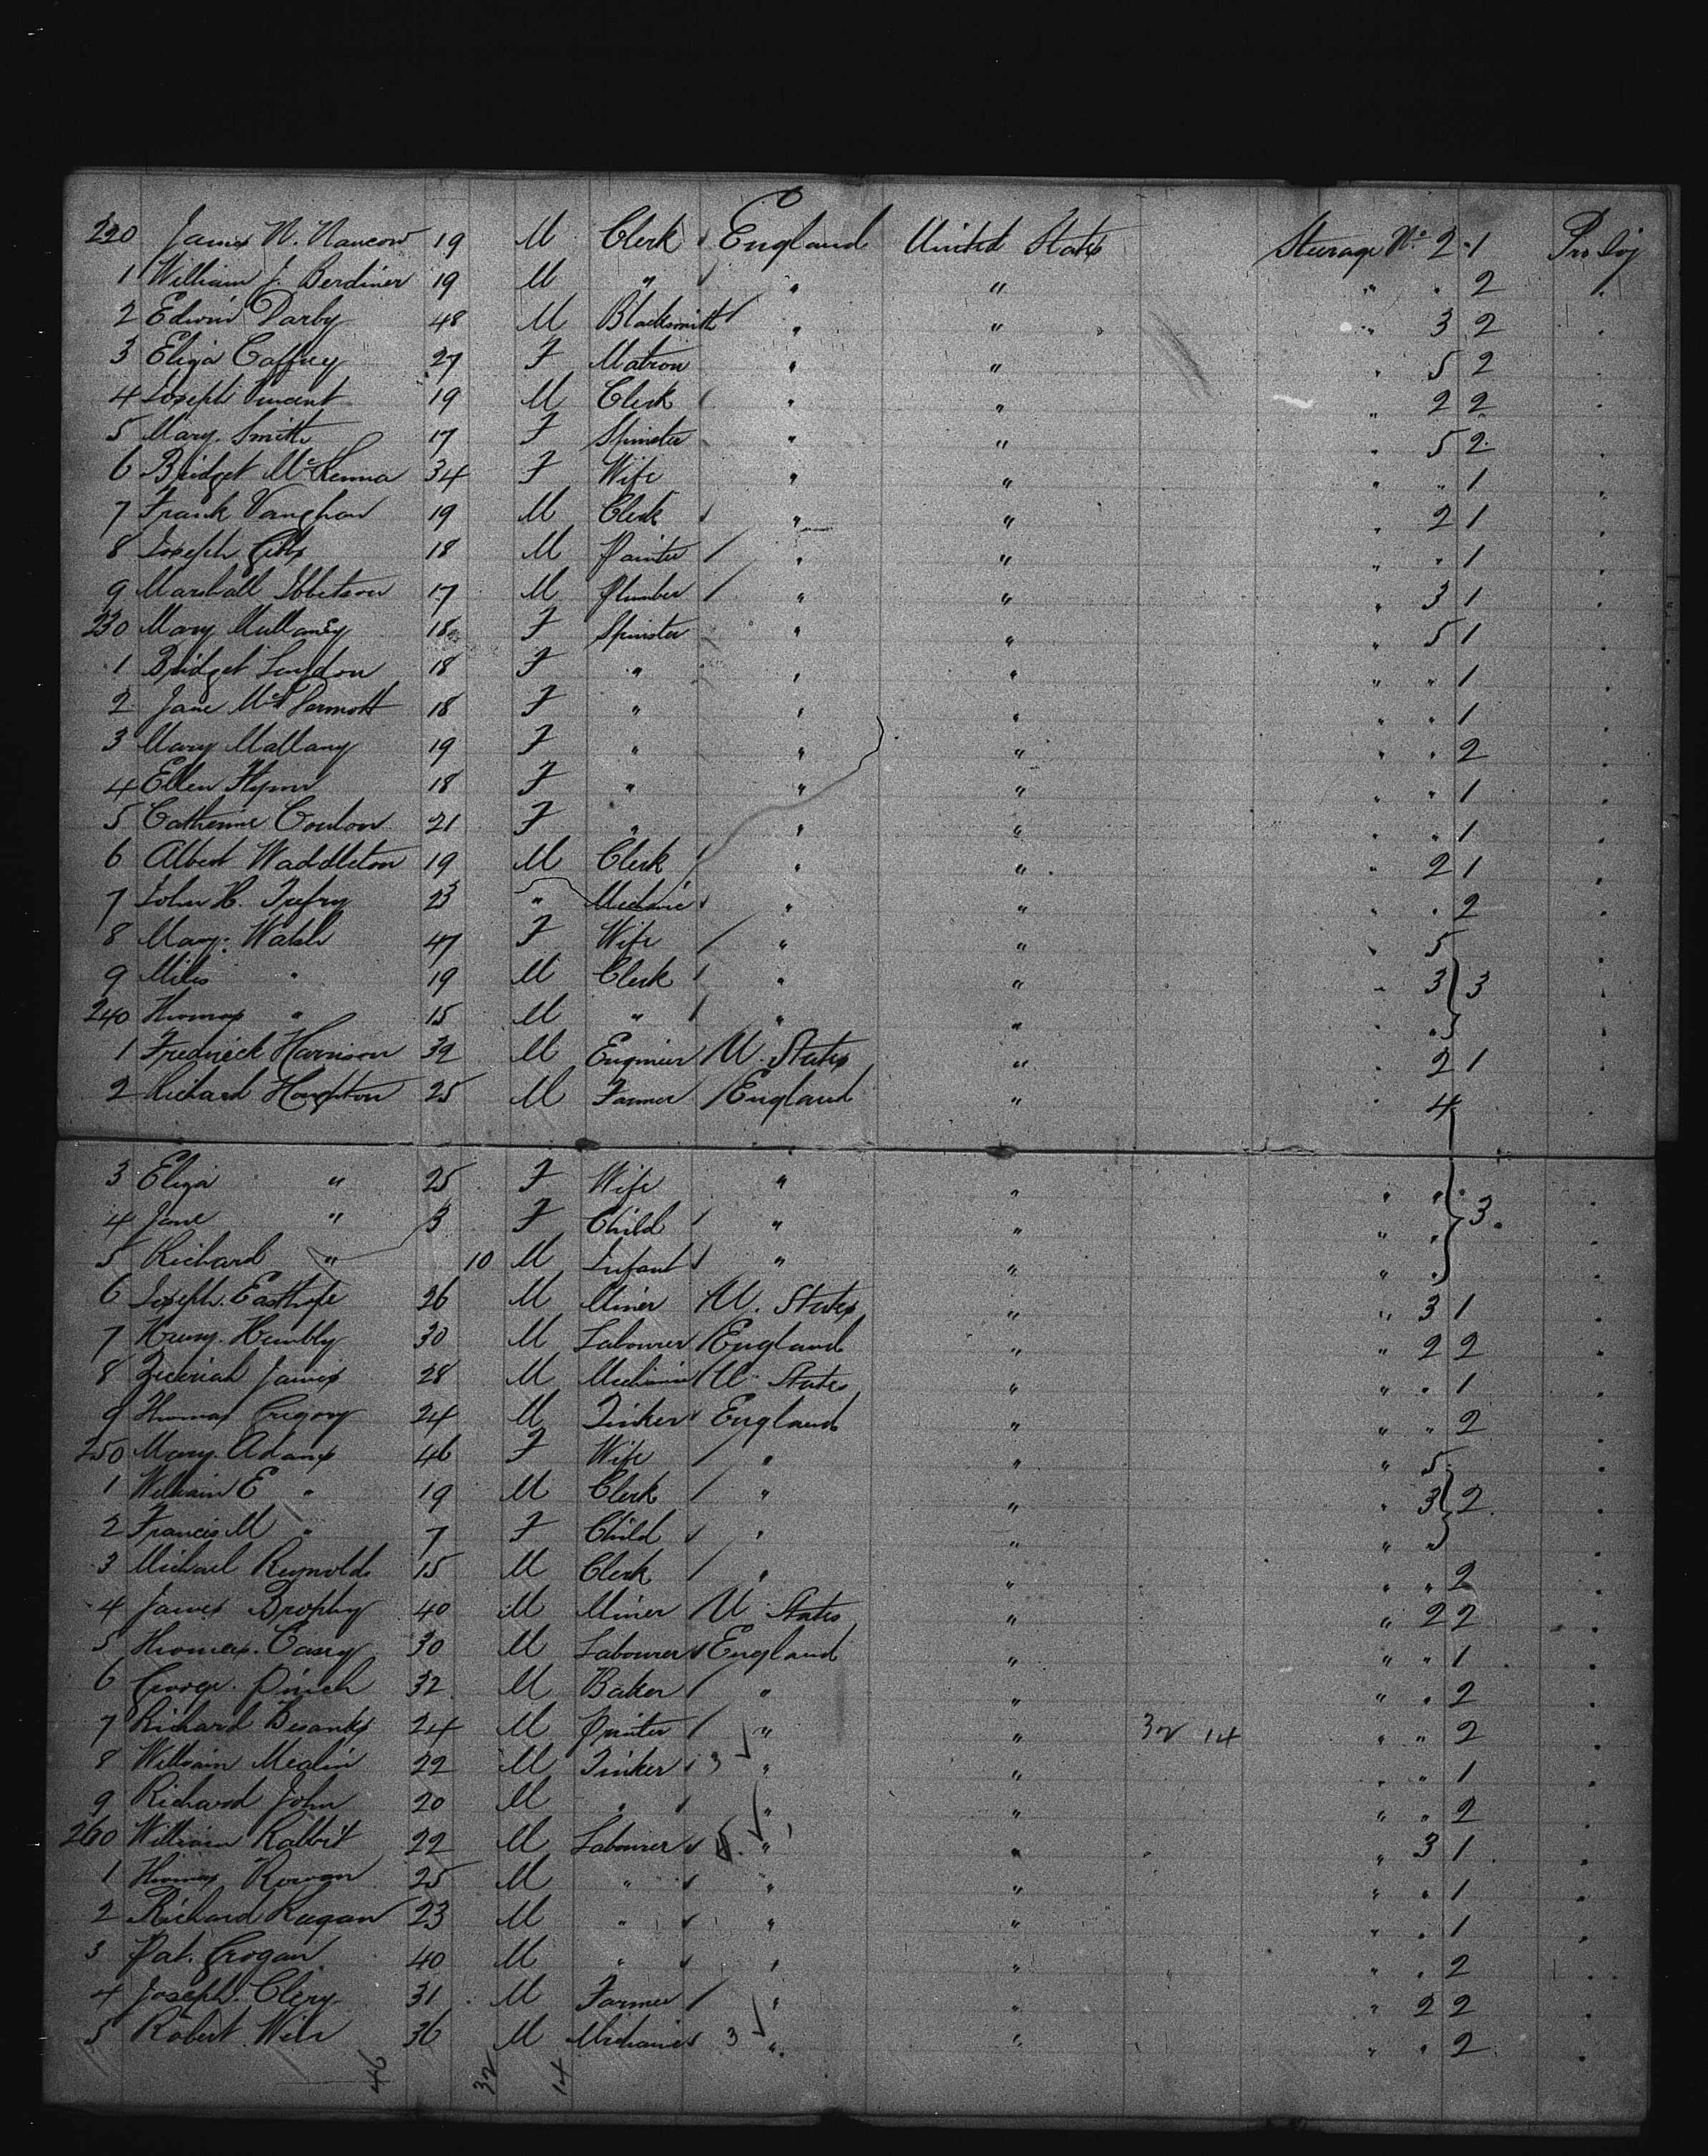 220 James N. Nancow 19 M Clerk England United States Steerage No 2 1 Pro Soj
1 William J. Berdiner 19 M " " " " " 2 "
2 Edwin Darby 48 M Blacksmith " " " 3 2 "
3 Eliza Caffrey 27 F Matron " " " 5 2 "
4 Joseph Vincent 19 M Clerk " " " 2 2 "
5 Mary Smith 17 F Spinster " " " 5 2 "
6 Bridget McKenna 34 F Wife " " " " 1 "
7 Frank Vaughan 19 M Clerk " " " 2 1 "
8 Joseph Gibbs 18 M Painter " " " " 1 "
9 Marshall Ibbetson 17 M Plumber " " " 3 1 "
230 Mary Mullaney 18 F Spinster " " " 5 1 "
1 Bridget 18 F " " " " " 1 "
2 Jane McDermott 18 F " " " " " 1 "
3 Mary Mallany 19 F " " " " " 2 "
4 Ellen Flynn 18 F " " " " " 1 "
5 Catherine Conlon 21 F " " " " " 1 "
6 Albert Waddleton 19 M Clerk " " " 2 1 "
7 John H. Trefry 23 " Mechanic " " " " 2 "
8 Mary Walsh 47 F Wife " " " 5 "
9 Miles " 19 M Clerk " " " 3 3 "
240 Thomas " 15 M " " " " " "
1 Frederick Harrison 39 M Engineer U. States " " 2 1 "
2 Richard Houghton 25 M Farmer England " " 4 "
3 Eliza " 25 F Wife " " " " "
4 Jane " 3 F Child " " " " 3 "
5 Richard " 10 M Infant " " " " "
6 Joseph Easthope 26 M Miner U. States " " 3 1 "
7 Henry Hembly 30 M Labourer England " " 2 2 "
8 Zeceriah James 28 M Mechanic U. States " " " 1 "
9 Thomas Gregory 24 M Tinker England " " " 2 "
250 Mary Adams 46 F Wife " " " 5 "
1 William E " 19 M Clerk " " " 3 2 "
2 Francis M " 7 F Child " " " " "
3 Michael Reynolds 15 M Clerk " " " " 2 "
4 James Brophy 40 M Miner U. States " " 2 2 "
5 Thomas Casey 30 M Labourer England " " " 1 "
6 George Pinch 32 M Baker " " " " 2 "
7 Richard Besanks 24 M Printer " " 32 14 " " 2 "
8 William Mealin 22 M Tinker 3 " " " " 1 "
9 Richard John 20 M " " " " " 2 "
260 William Rabbit 22 M Labourer " " " 3 1 "
1 Thomas Rowan 25 M " " " " " 1 "
2 Richard Keegan 23 M " " " " " 1 "
3 Pat. Grogan 40 M " " " " " 2 "
4 Joseph Clery 31 M Farmer " " " 2 2 "
5 Robert Weir 36 M Mechanic 3 " " " " 2 "
46 32 14